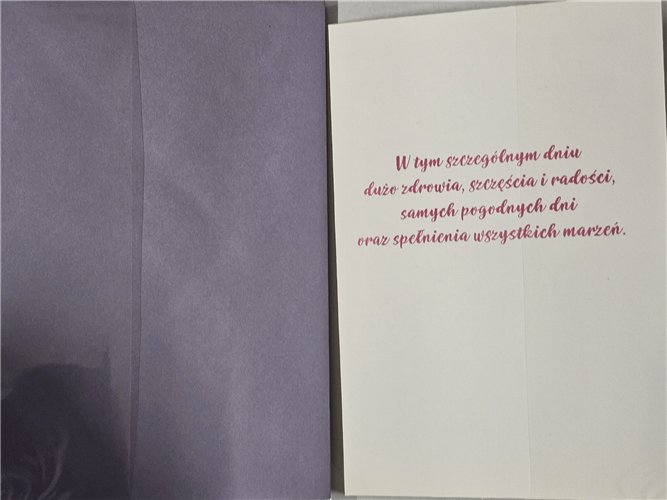 W tym szczególnym dniu
dużo zdrowia, szczęścia i radości,
samych pogodnych dni
oraz spełnienia wszystkich marzeń.